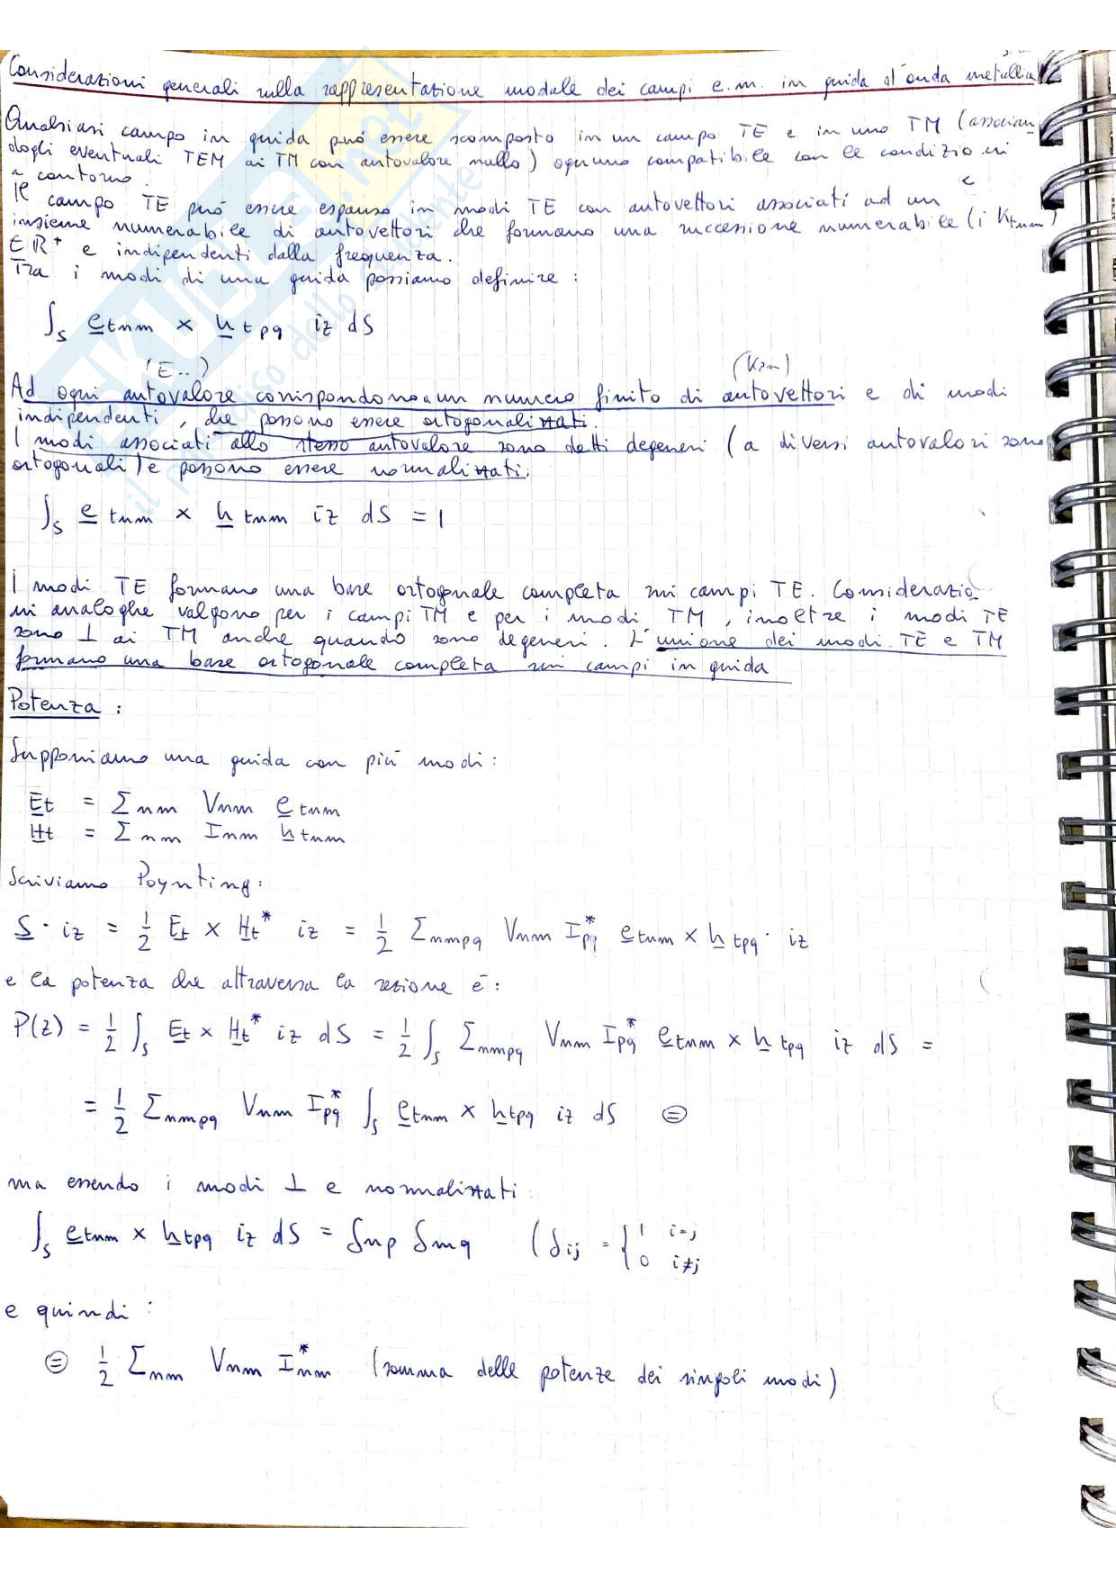 Considerazioni generali sulla rappresentazione modale dei campi e.m. in guida d'onda metallica
Qualsiasi campo in guida può essere scomposto in un campo TE e in uno TM (associan
dogli eventuali TEM ai TM con autovalore nullo) ognuno compatibile con le condizioni
a contorno.
Il campo TE può essere espanso in modi TE con autovettori associati ad un
insieme numerabile di autovettori che formano una successione numerabile (i Ktnm)
∈ R⁺ e indipendenti dalla frequenza.
Tra i modi di una guida possiamo definire :
∫s etnm × htpq iz dS
(E..) (Ktnm)
Ad ogni autovalore corrispondono a un numero finito di autovettori e di modi
indipendenti, che possono essere ortogonalizzati.
I modi associati allo stesso autovalore sono detti degeneri (a diversi autovalori sono
ortogonali) e possono essere normalizzati.
∫s etnm × htnm iz dS = 1
I modi TE formano una base ortogonale completa sui campi TE. Considerazio
ni analoghe valgono per i campi TM e per i modi TM, inoltre i modi TE
sono ⊥ ai TM anche quando sono degeneri. L'unione dei modi TE e TM
formano una base ortogonale completa sui campi in guida
Potenza :
Supponiamo una guida con più modi :
Et = Σnm Vnm etnm
Ht = Σnm Inm htnm
Scriviamo Poynting:
S · iz = 1/2 Et × Ht* iz = 1/2 Σnmpq Vnm Ipq* etnm × htpq · iz
e la potenza che attraversa la sezione è :
P(z) = 1/2 ∫s Et × Ht* iz dS = 1/2 ∫s Σnmpq Vnm Ipq* etnm × htpq iz dS =
= 1/2 Σnmpq Vnm Ipq* ∫s etnm × htpq iz dS ⊜
ma essendo i modi ⊥ e normalizzati
∫s etnm × htpq iz dS = δnp δmq (δij = { 1 i=j
0 i≠j
e quindi :
⊜ 1/2 Σnm Vnm Inm* (somma delle potenze dei singoli modi)